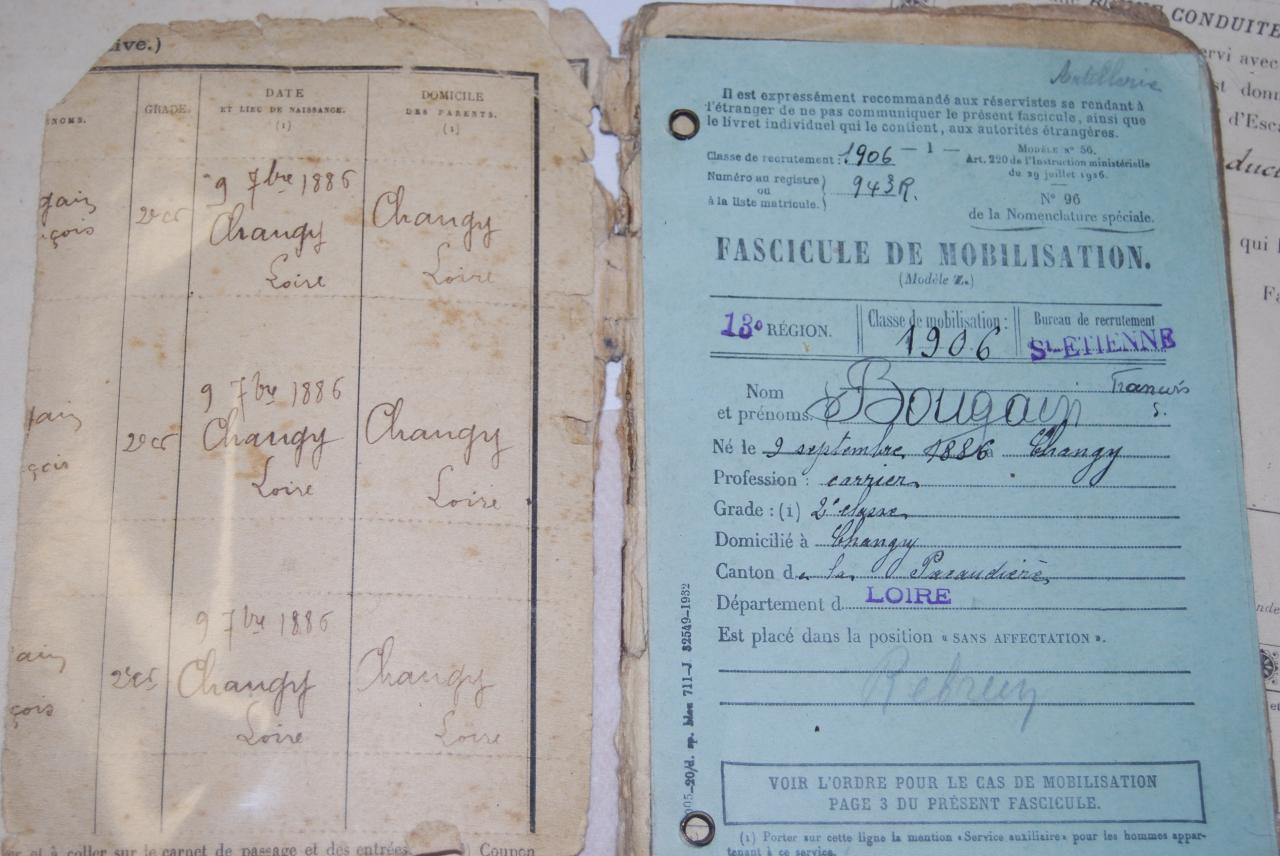 ive.)
NOMS.
GRADE.
DATE
ET LIEU DE NAISSANCE.
(1)
DOMICILE
DES PARENTS.
(1)
9 7bre 1886
gain
çois
2e cl
Changy
Changy
Loire
Loire
9 7bre 1886
gain
çois
2e cl
Changy
Changy
Loire
Loire
9 7bre 1886
ain
çois
2e cl
Changy
Changy
Loire
Loire
er et à coller sur le carnet de passage et des entrées.
Coupon
Artillerie
Il est expressément recommandé aux réservistes se rendant à
l'étranger de ne pas communiquer le présent fascicule, ainsi que
le livret individuel qui le contient, aux autorités étrangères.
Classe de recrutement : 1906
— 1 —
MODÈLE N° 56.
Art. 220 de l'Instruction ministérielle
du 29 juillet 1926.
Numéro au registre
ou
à la liste matricule.
943 R.
N° 96
de la Nomenclature spéciale.
FASCICULE DE MOBILISATION.
(Modèle Z.)
13e RÉGION.
Classe de mobilisation :
1906
Bureau de recrutement
St-ETIENNE
Nom
et prénoms. Bougain Francois
S.
Né le 9 septembre 1886 à Changy
Profession : carrier
Grade : (1) 2e classe
Domicilié à Changy
Canton de la Pacaudière
Département d LOIRE
Est placé dans la position « SANS AFFECTATION ».
VOIR L'ORDRE POUR LE CAS DE MOBILISATION
PAGE 3 DU PRÉSENT FASCICULE.
(1) Porter sur cette ligne la mention «Service auxiliaire» pour les hommes appar-
tenant à ce service.
711-J. 32549-1932
CONDUITE
ervi avec
st donn
d'Esca
duct
qui